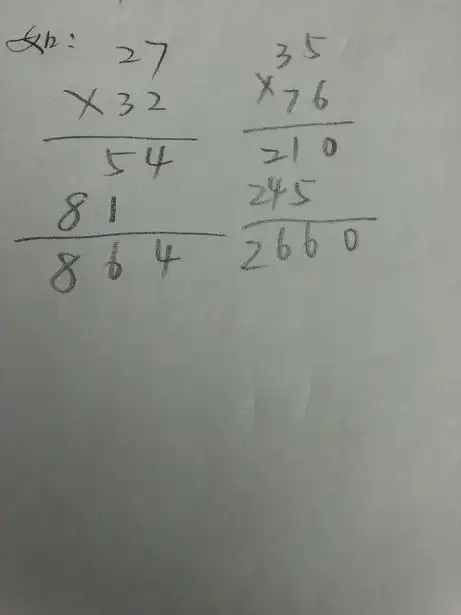 如: 27 35
×32 ×76
54 210
81 245
864 2660